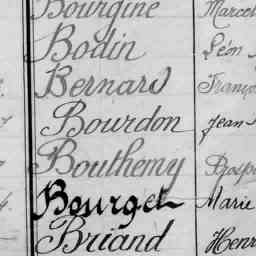 Bourgine Marcel
Bodin Léon
Bernard
Bourdon Jean
Bouthemy
Bourget Marie
Briand Henri